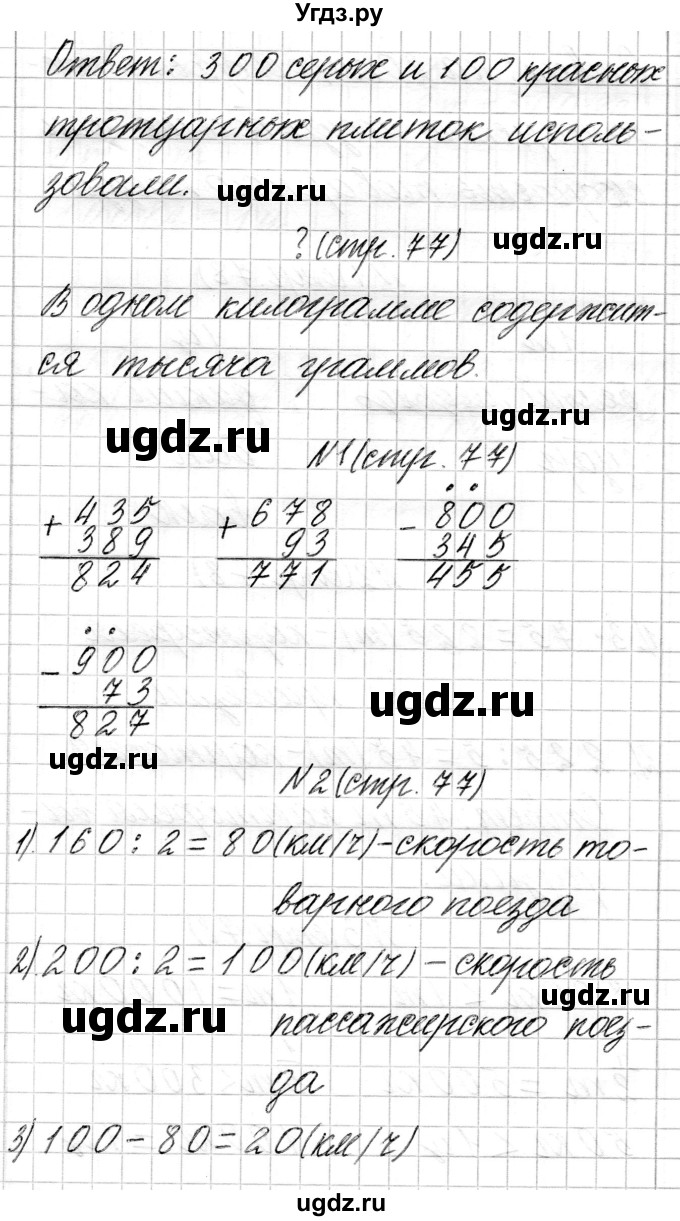 Угдз.ру
Ответ: 300 серых и 100 красных
тротуарных плиток исполь-
зовали.
ugdz.ru
? (стр. 77)
ugdz.ru
В одном килограмме содержит-
ся тысяча граммов.
ugdz.ru
ugdz.ru
N1 (стр. 77)
+ 435
389
824
+ 678
93
771
- 800
345
455
- 900
73
827
ugdz.ru
ugdz.ru
N2 (стр. 77)
1) 160 : 2 = 80 (км/ч) - скорость то-
варного поезда
2) 200 : 2 = 100 (км/ч) - скорость
ugdz.ru
ugdz.ru
пассажирского поез-
да
3) 100 - 80 = 20 (км/ч)
ugdz.ru